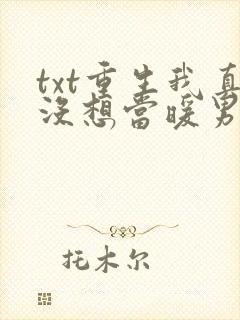 txt重生我真
没想当暖男
托木尔